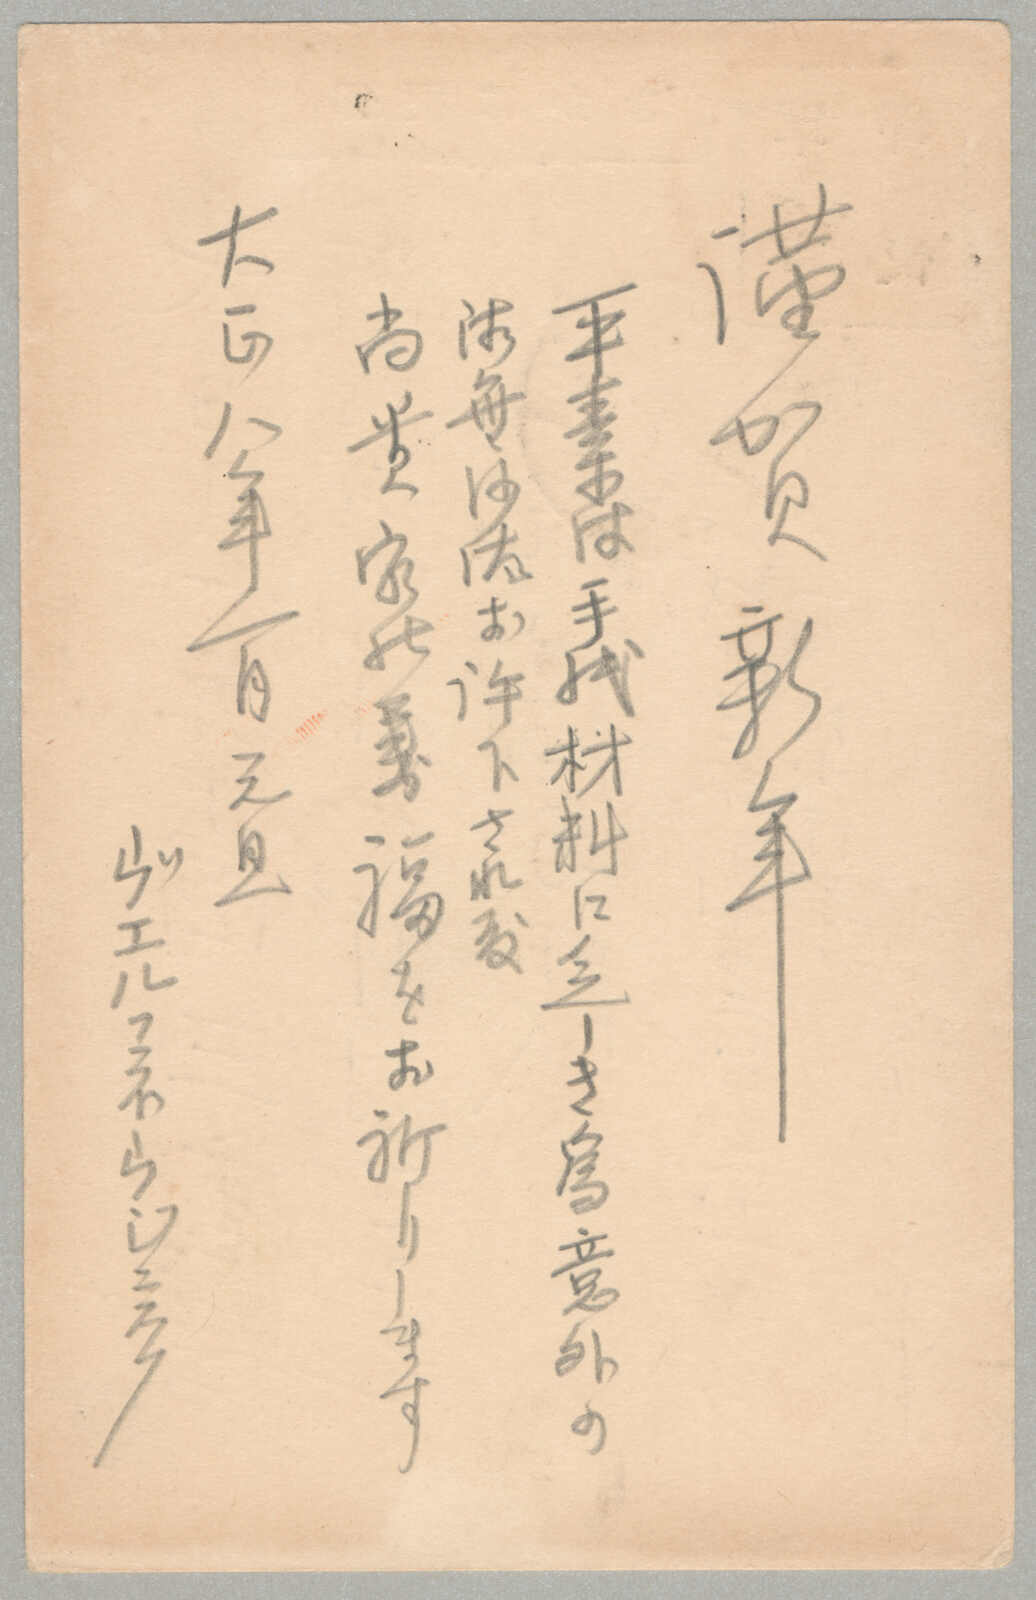 謹賀新年
平素は手紙材料に乏しき為意外の
御無沙汰お許下され度
尚貴家の萬福をお祈りします
大正八年一月元旦